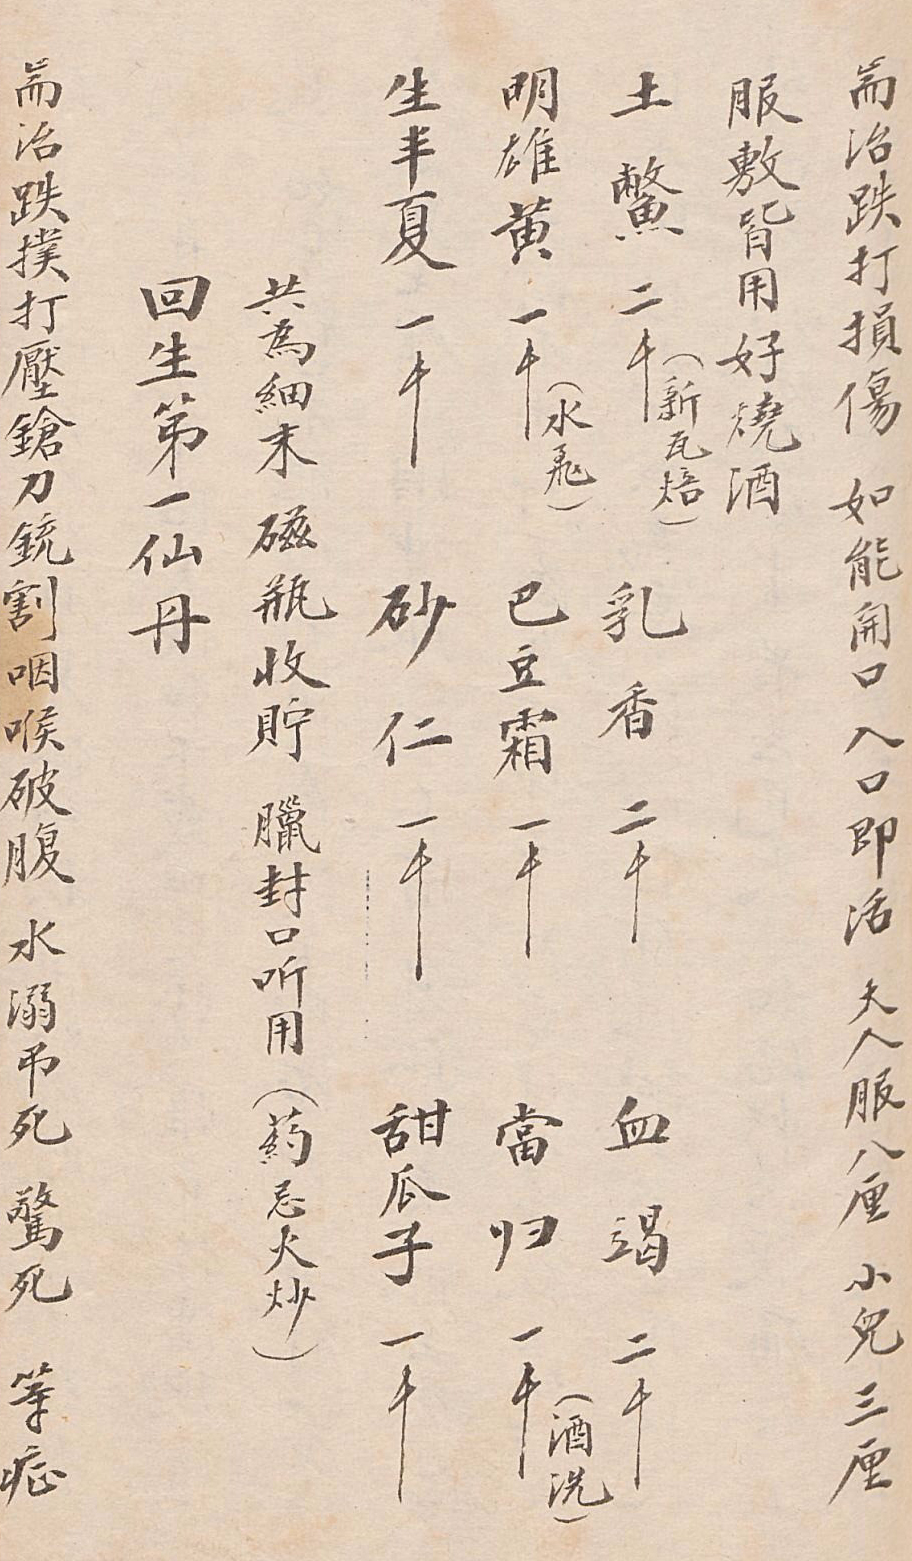 耑治跌打損傷 如能開口 入口即活 大人服八厘 小兒三厘
服敷皆用好燒酒
土鱉二千（新瓦焙） 乳香二千 血竭二千
明雄黄一千（水飛） 巴豆霜一千 當归一千（酒洗）
生半夏一千 砂仁一千 甜瓜子一千
共為細末 磁瓶收貯 臘封口听用（葯忌火炒）
回生第一仙丹
耑治跌撲打壓鎗刀銃割咽喉破腹 水溺吊死 驚死 等症